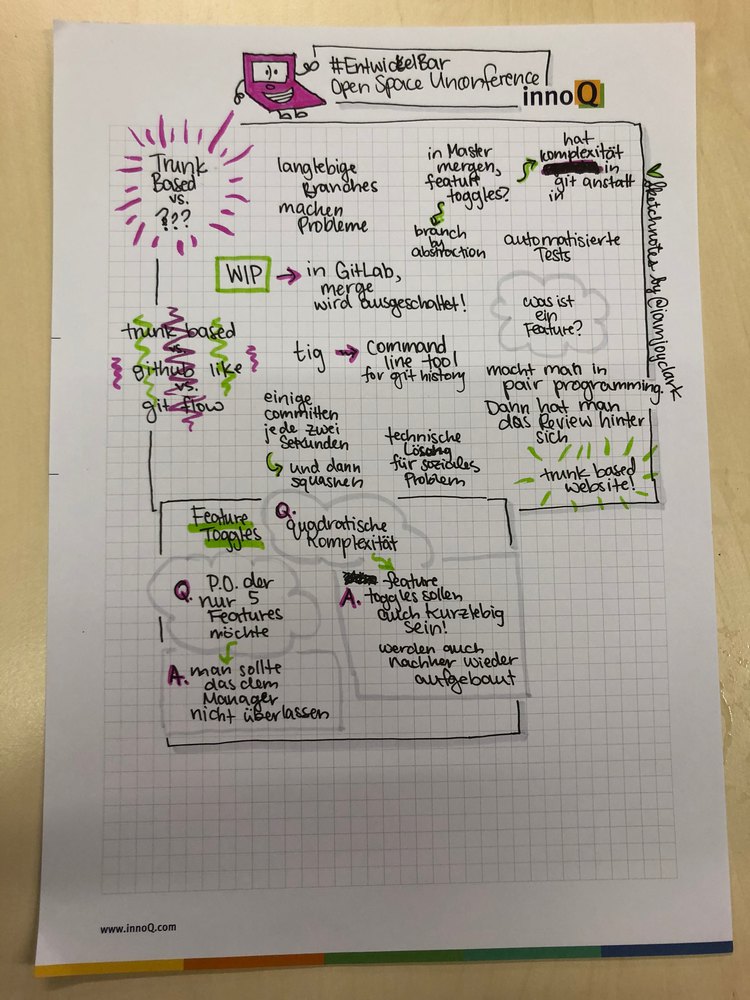 #EntwickelBar
Open Space Unconference
innoQ
Trunk
Based
vs.
???
langlebige
Branches
machen
Probleme
in Master
mergen,
feature
toggles?
branch
by
abstraction
hat
komplexität
in
git anstatt
in
automatisierte
Tests
WIP
in GitLab,
merge
wird ausgeschaltet!
was ist
ein
Feature?
trunk based
vs.
github like
vs.
git flow
tig
command
line tool
for git history
macht man in
pair programming.
Dann hat man
das Review hinter
sich
einige
committen
jede zwei
Sekunden
und dann
squashen
technische
Lösung
für soziales
Problem
trunk based
website!
Sketchnotes by @iamjoyclark
Feature
Toggles
Q.
quadratische
Komplexität
Q. P.O. der
nur 5
Features
möchte
A. man sollte
das dem
Manager
nicht überlassen
feature
A. toggles sollen
auch kurzlebig
sein!
werden auch
nachher wieder
aufgebaut
www.innoQ.com